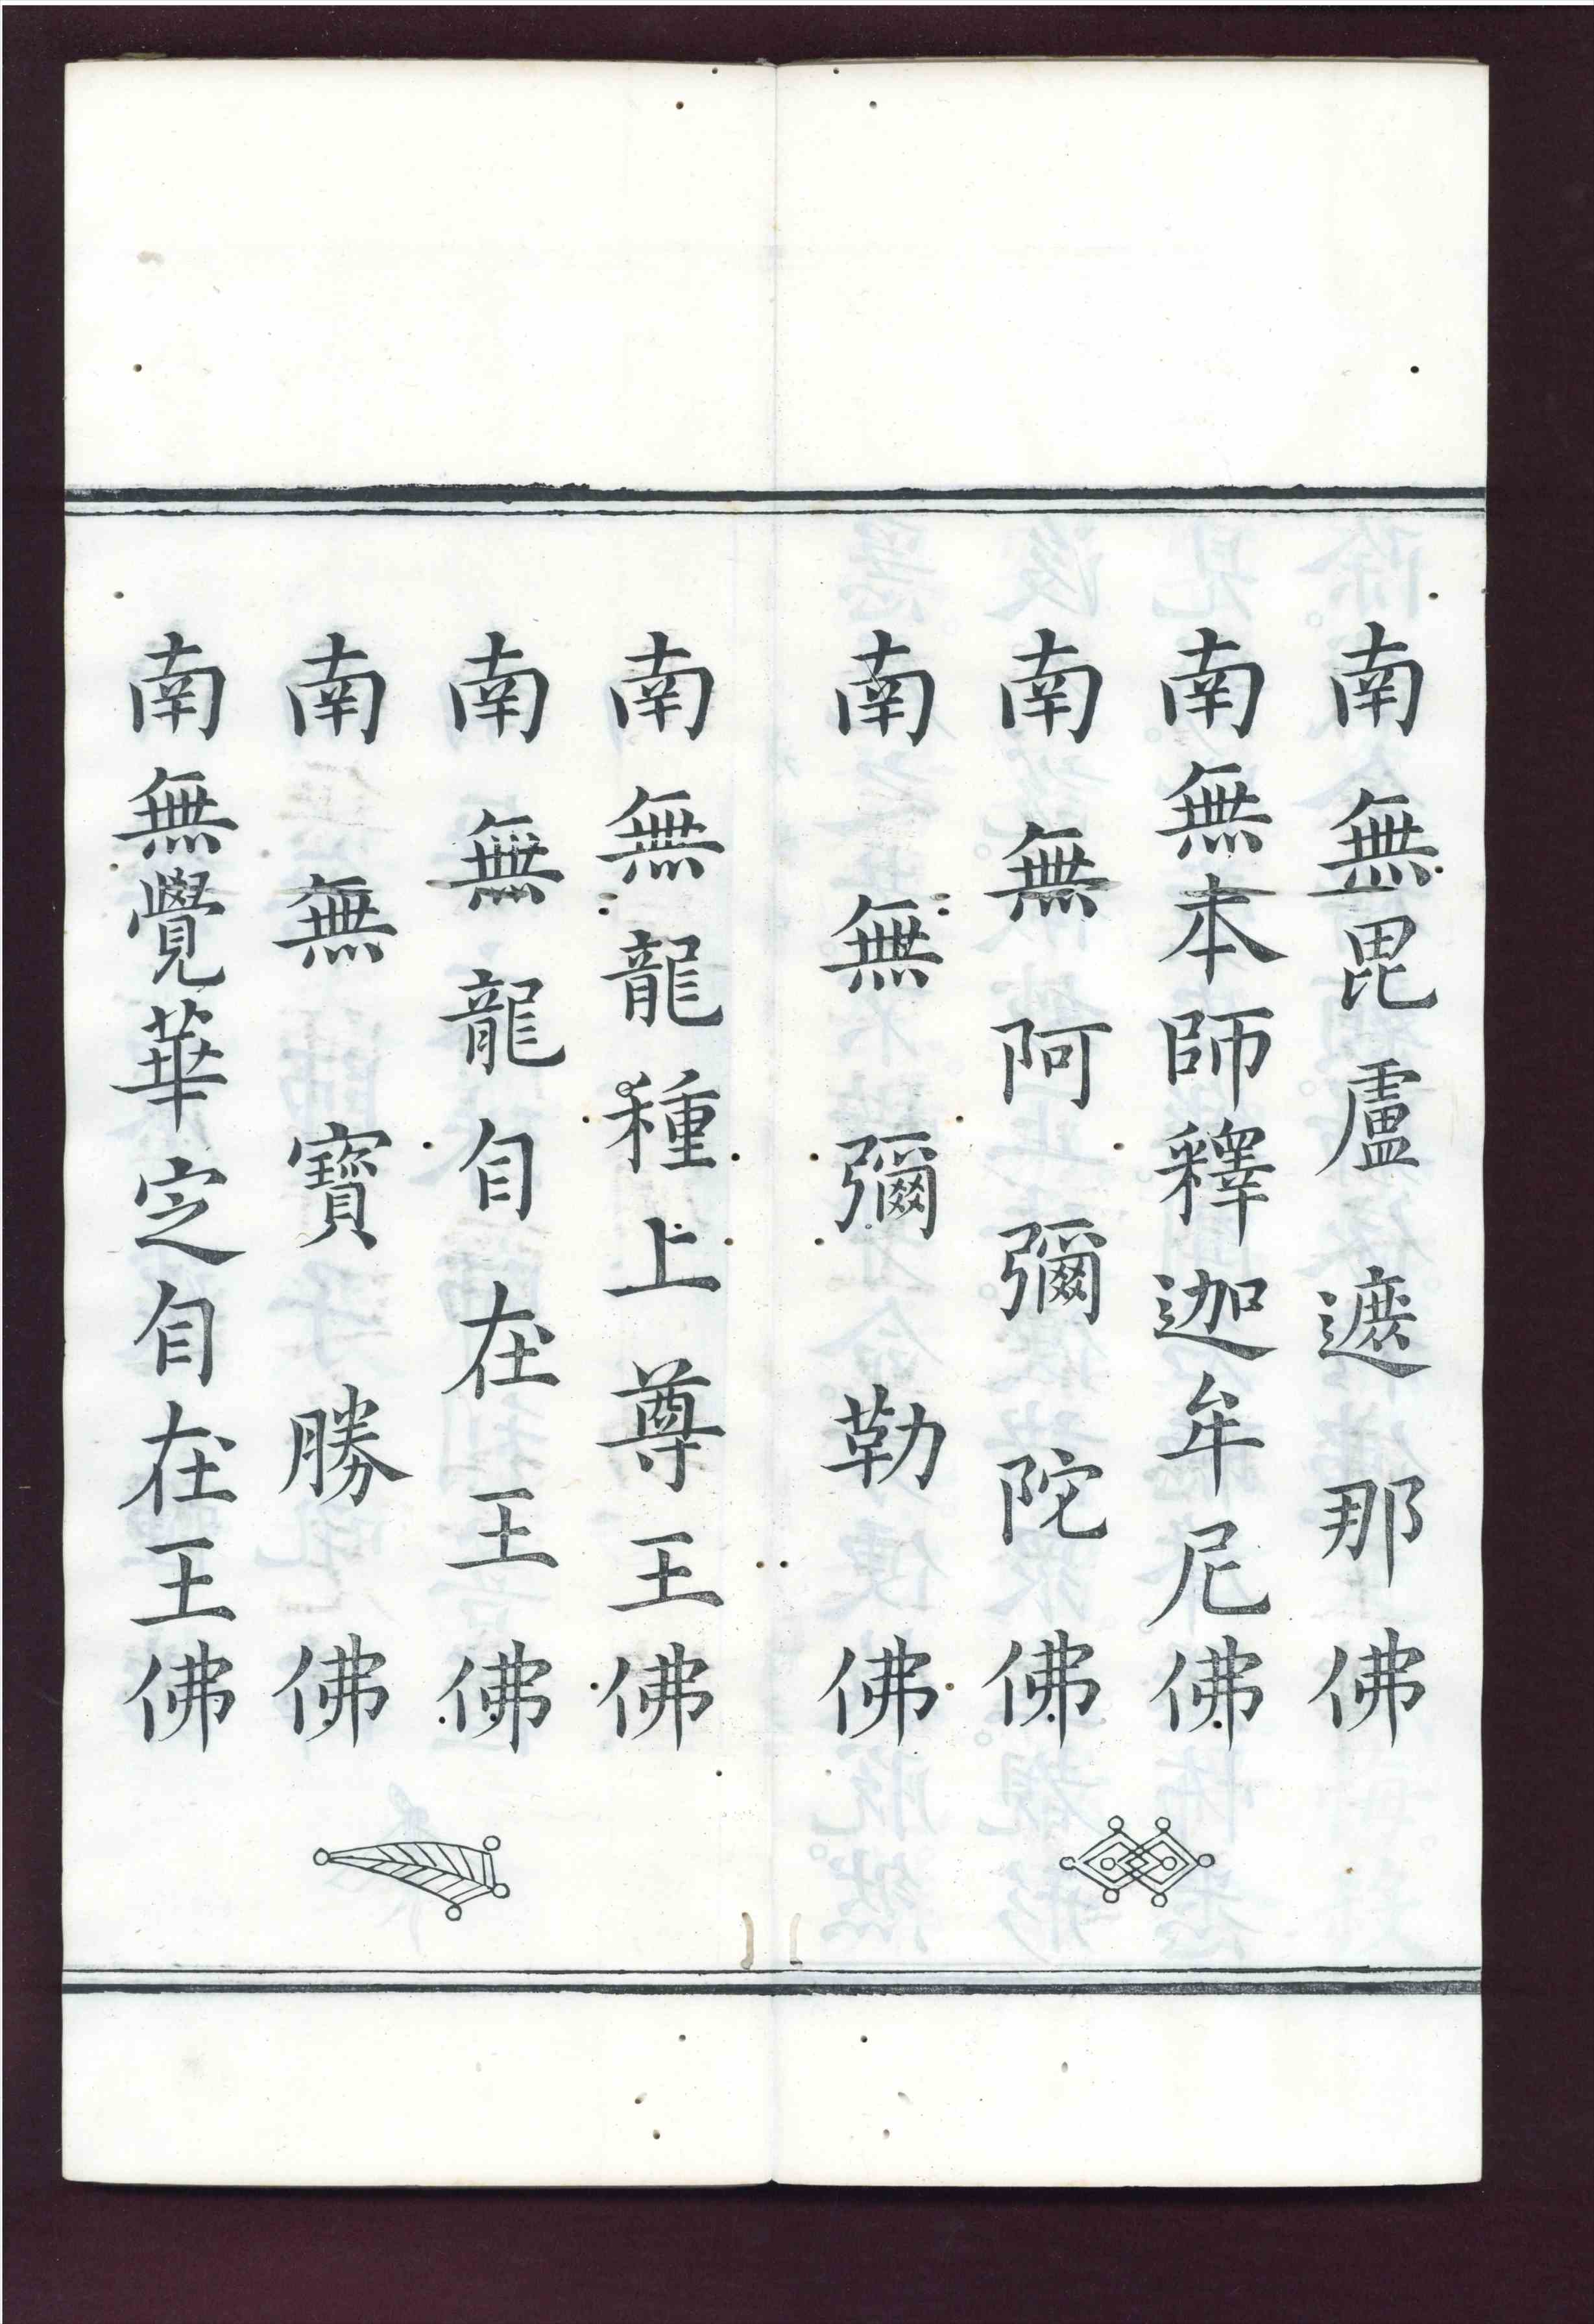 南無毘盧遮那佛
南無本師釋迦牟尼佛
南無阿彌陀佛
南無彌勒佛
南無龍種上尊王佛
南無龍自在王佛
南無寶勝佛
南無覺華定自在王佛